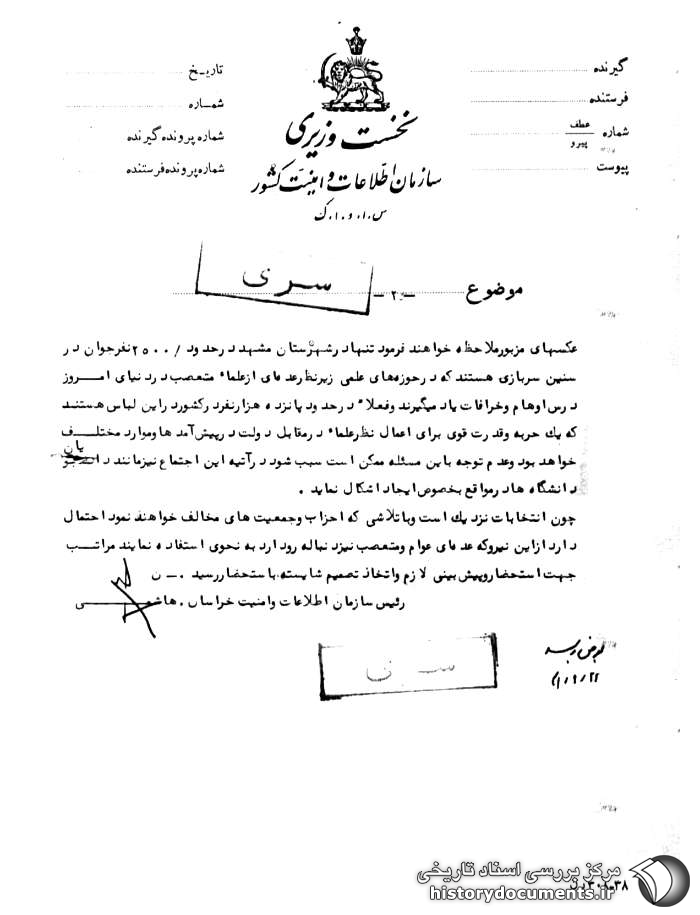 گیرنده
فرستنده
شماره عطف
پیرو
پیوست
نخست وزیری
سازمان اطلاعات و امنیت کشور
س.ا.و.ا.ک
تاریخ
شماره
شماره پرونده گیرنده
شماره پرونده فرستنده
موضوع -۲- سری
عکسهای مزبور ملاحظه خواهند فرمود تنها در شهرستان مشهد در حدود /۲۵۰۰ نفر جوان در
سنین سربازی هستند که در حوزه‌های علمی زیر نظر عده‌ای از علماء متعصب در دنیای امـــروز
درس اوهام و خرافات یاد میگیرند و فعلاً در حدود پانزده هزار نفر در کشور در این لباس هستند
که یك حربه و قدرت قوی برای اعمال نظر علماء در مقابل دولت در پیش آمدها و موارد مختلـــف
خواهد بود و عدم توجه باین مسئله ممکن است سبب شود در آتیه این اجتماع نیز مانند دانشجویان
دانشگاه ها در مواقع بخصوص ایجاد اشکال نماید .
چون انتخابات نزدیك است و با تلاشی که احزاب و جمعیت های مخالف خواهند نمود احتمال
دارد از این نیرو که عده‌ای عوام و متعصب نیز دنباله رو دارد به نحوی استفاده نمایند مراتـــب
جهت استحضار و پیش بینی لازم و اتخاذ تصمیم شایسته باستحضار رسید . ــ ن
رئیس سازمان اطلاعات و امنیت خراسان . هاشمـــی
سری
بعرض رسید
۴۱/۹/۲۲
۳۰۸-۳۸
مرکز بررسی اسناد تاریخی
historydocuments.ir